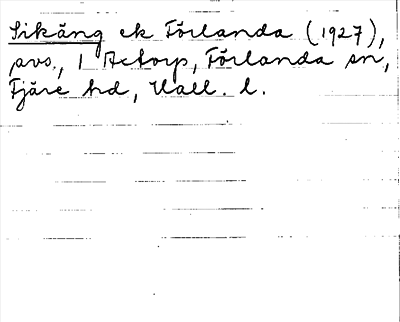 Sikäng ek Förlanda (1927),
avs., 1 Ackorp, Förlanda sn,
Fjäre hd, Hall. l.